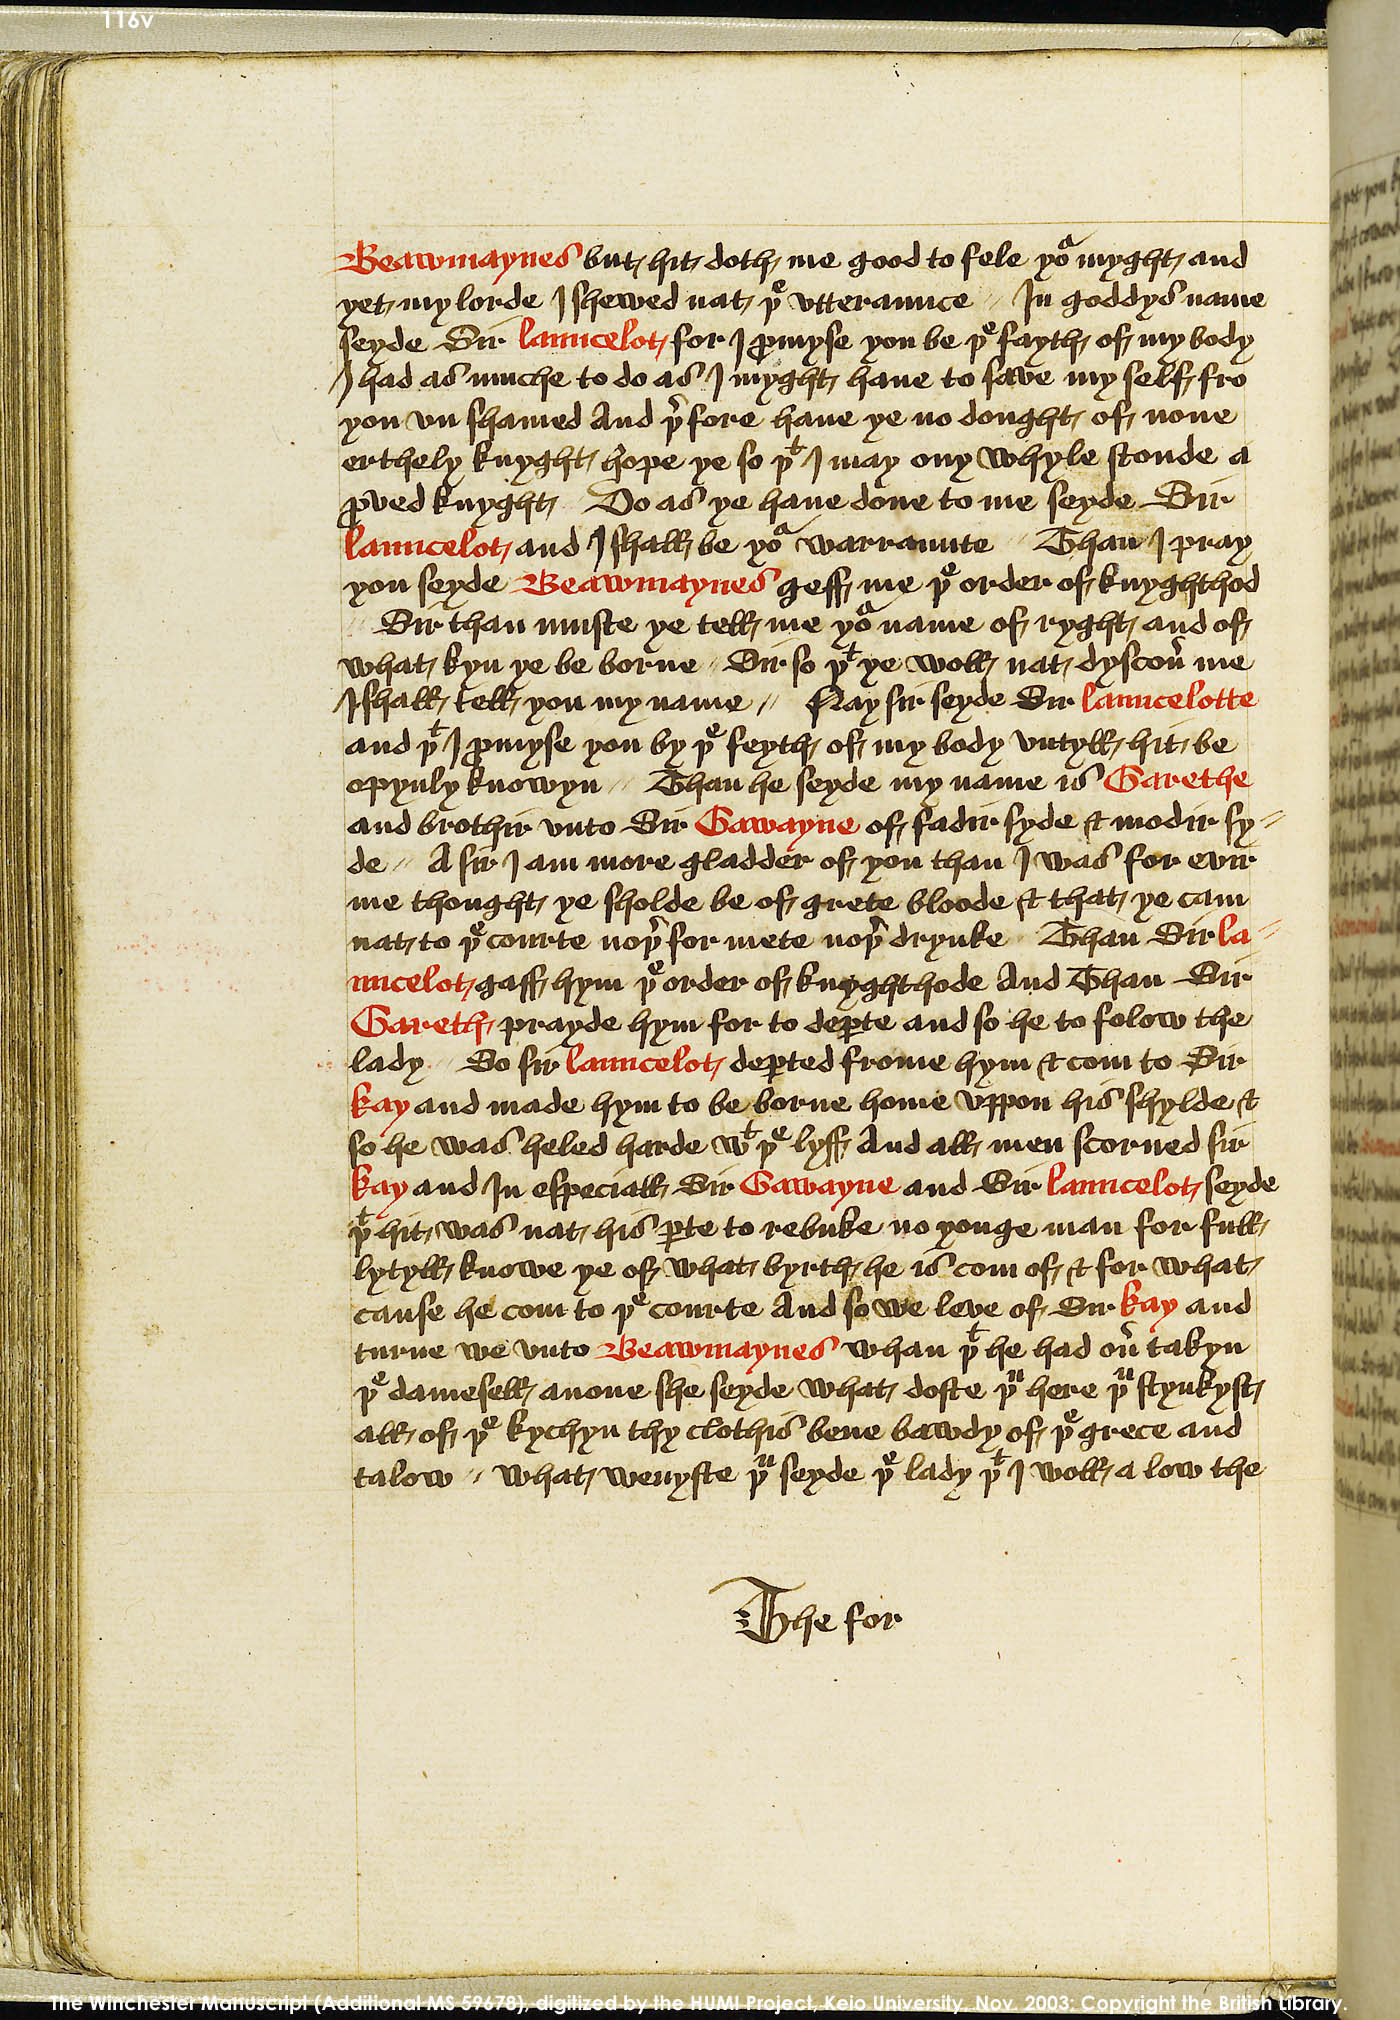 116v
Beawmaynes but hit doth me good to fele yoᵃ myght and
yet my lorde I shewed nat þᵉ vtteraunce // In goddys name
seyde Sir launcelot for I ꝓmyse you be þᵉ fayth of my body
I had as muche to do as I myght haue to save my self fro
you vn shamed And þ̉fore haue ye no dought of none
erthely knyght hope ye so þᵗ I may ony whyle stonde a
ꝓved knyght Do as ye haue done to me seyde Sir
launcelot and I shall be yoᵃ warraunte // Than I pray
you seyde Beawmaynes geff me þᵉ order of knyghthod
// Sir than muste ye tell me yoᵃ name of ryght and of
what kyn ye be borne // Sir so þᵗ ye woll nat dyscoū me
I shall tell you my name // Nay sir seyde Sir launcelotte
and þᵗ I ꝓmyse you by þᵉ feyth of my body vntyll hit be
opynly knowyn // Than he seyde my name is Garethe
and brothir vnto Sir Gawayne of fadir syde & modir sy//
de // A sir I am more gladder of you than I was for evir
me thought ye sholde be of grete bloode & that ye cam
nat to þᵉ courte noþ̉ for mete noþ̉ drynke // Than Sir la//
uncelot gaff hym þᵉ order of knyghthode And Than Sir
Gareth prayde hym for to deꝑte and so he to folow the
lady // So sir launcelot deꝑted frome hym & com to Sir
kay and made hym to be borne home vppon his shylde &
so he was heled harde wᵗ þᵉ lyff And all men scorned sir
kay and In especiall Sir Gawayne and Sir launcelot seyde
þᵗ hit was nat his ꝑte to rebuke no yonge man for full
lytyll knowe ye of what byrth he is com of & for what
cause he com to þᵉ courte And so we leve of Sir kay and
turne we vnto Beawmaynes whan þᵗ he had oū takyn
þᵉ damesell anone she seyde what doste þᵘ here þᵘ stynkyst
all of þᵉ kychyn thy clothis bene bawdy of þᵉ grece and
talow // what wenyste þᵘ seyde þᵉ lady þᵗ I woll a low the
The for
The Winchester Manuscript (Additional MS 59678), digitized by the HUMI Project, Keio University, Nov. 2003; Copyright the British Library.